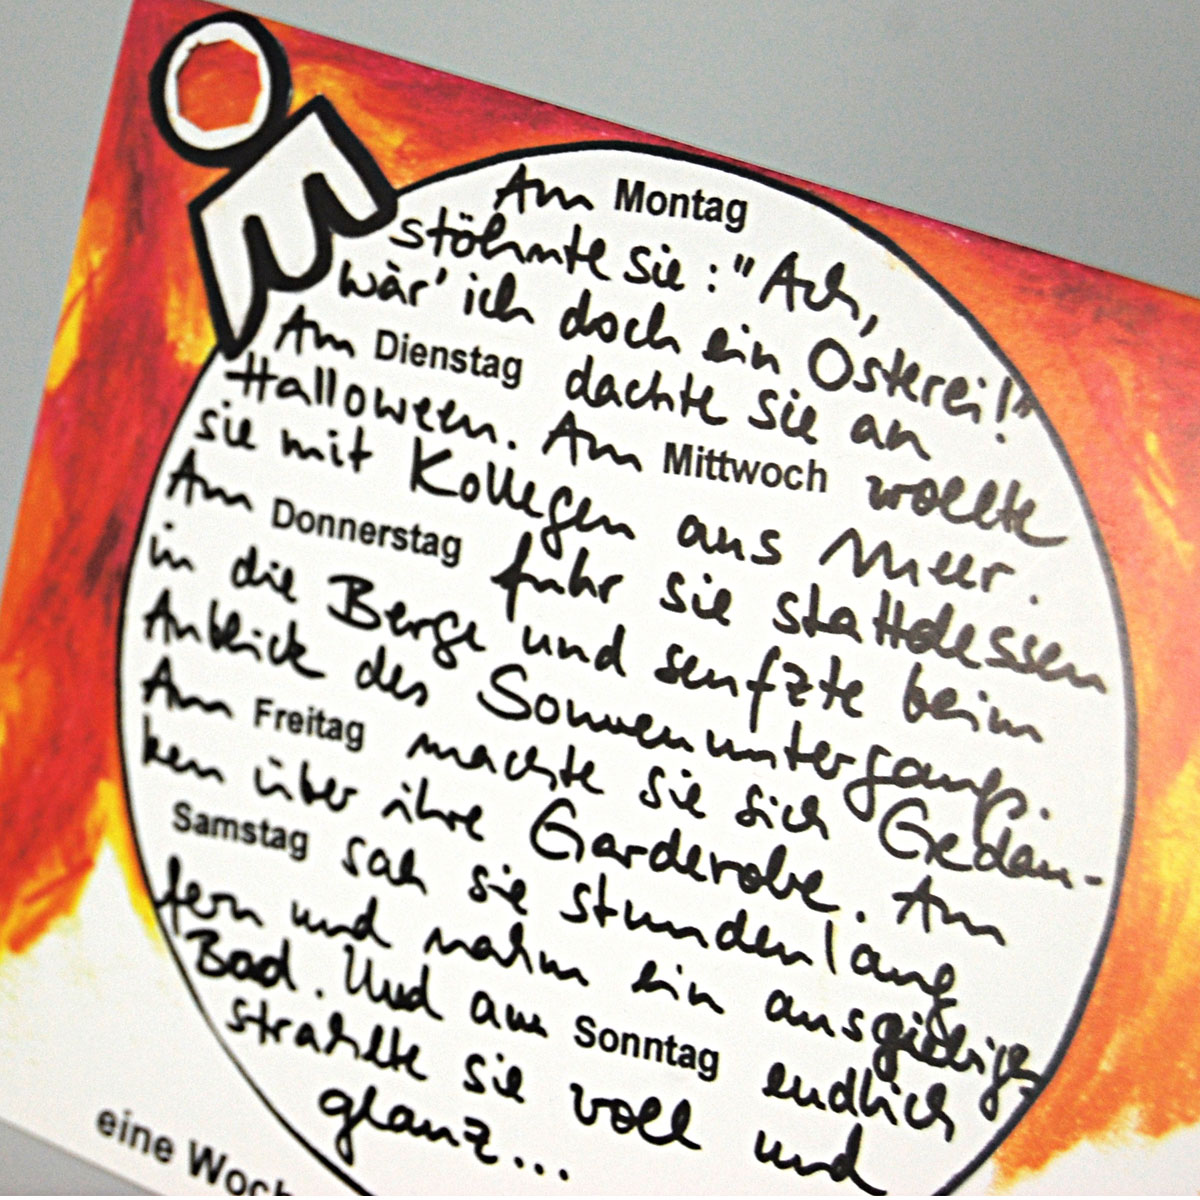 Am Montag
stöhnte sie: "Ach,
wär' ich doch ein Osterei!"
Am Dienstag dachte sie an
Halloween. Am Mittwoch wollte
sie mit Kollegen ans Meer.
Am Donnerstag fuhr sie stattdessen
in die Berge und seufzte beim
Anblick des Sonnenuntergangs.
Am Freitag machte sie sich Gedan-
ken über ihre Garderobe. Am
Samstag sah sie stundenlang
fern und nahm ein ausgiebiges
Bad. Und am Sonntag endlich
strahlte sie voll und
glanz...
eine Woch